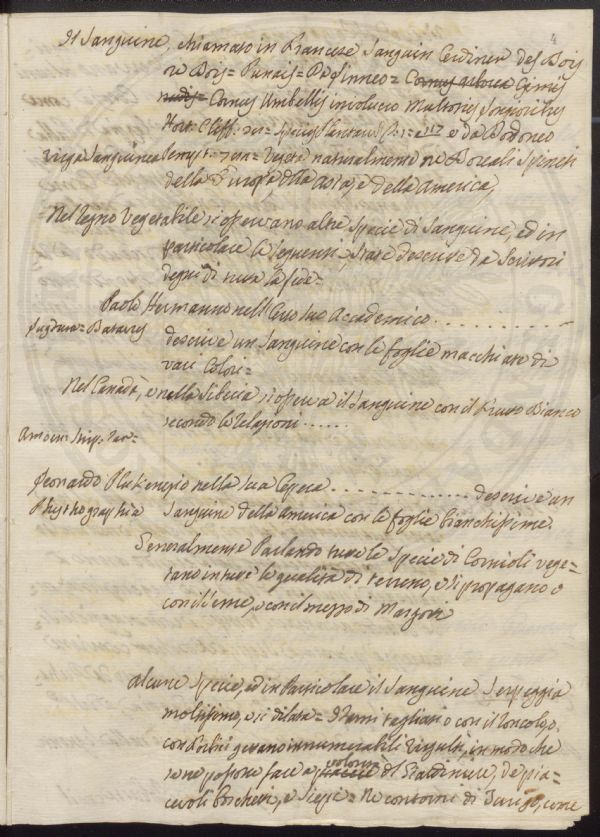 4
Il Sanguine, chiamato in Francese Sanguin Cordiner des Bois
ou Bois = Punais = Da Linneo = Cornus arborea Cymis
nudis = Cornus Umbellis involucro
Hort: Cliff: = Species Plantarum P: 1 = 117 e da Dodoneo
Virga Sanguinea = Vegeta naturalmente ne Boreali Spineti
della Europa, della Asia, e della America,
Nel Regno Vegetabile si osservano altre Specie di Sanguine, ed in
particolare le seguenti, state descritte da Scrittori
degni di tutta la fede =
Paolo Hermanno nell'Orto suo Accademico . . . . . . . . . .
Lugduno = Batavus
descrive un Sanguine con le foglie macchiate di
varj Colori =
Nel Canadà, e nella Siberia si osserva il Sanguine con il Frutto Bianco
secondo le Relazioni . . . . . .
Amoen:
Leonardo Plukenezio nella sua Opera . . . . . . . . . . . . . descrive un
Phythographia Sanguine della America con le foglie bianchissime.
Generalmente Parlando tutte le Specie di Cornioli vege=
tano in tutte le qualità di terreno, e si propagano o
con il seme, o con il mezzo di Margotte
Alcune Specie, ed in Particolare il Sanguine Serpeggia
moltissimo, e si dilata = I Rami tagliati o con il Roncolo, o
con Forbici gettano innumerabili Virgulti, in modo che
se ne possono fare a volontà delle Spalliere, de pia=
cevoli Boschetti, e Siepi = Ne contorni di Parigi, come